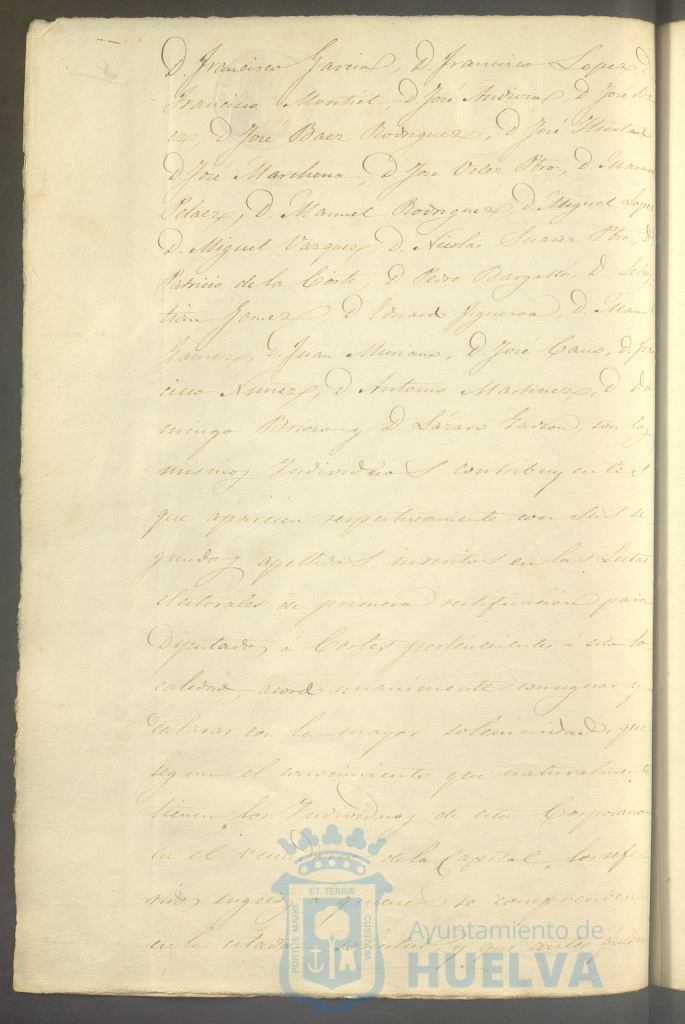 D. Francisco Garcia, D Francisco Lopez, D
Francisco Montiel, D José Andivia, D. José
ez, D. José Baez Rodriguez, D José Hurtado
D José Marchena, D José Velez Pbro, D. Manuel
Pelaez, D. Manuel Rodriguez, D. Miguel Lopez
D. Miguel Vazquez, D. Nicolas Suarez Pbro, D
Patricio de la Corte, D Pedro Bargalló, D. Sebas
tian Gomez, D Eduard Figueroa, D. Manl
Gamez, D. Juan Muriaux, D. José Cano, D. Fran
cisco Nuñez, D Antonio Martinez, D Do
mingo Brioso y D Lázaro Garzon, son los
mismos Individuos contribuyentes
que aparecen respectivamente con sus se
gundos apellidos inscritos en las Listas
electorales de primera rectificacion para
Diputados á Cortes pertenecientes á esta lo
calidad, acord unanimente consignar y
declarar con la mayor solemnidad, que
segun el conocimiento que naturalmente
tienen los Individuos de esta Corporacion
en el vecindario de la Capital, los refe
ridos sugetos á quienes se comprenden
en la citada y que antes quedan
PORTUS MARIS ET TERRÆ CUSTODIA
Ayuntamiento de
HUELVA